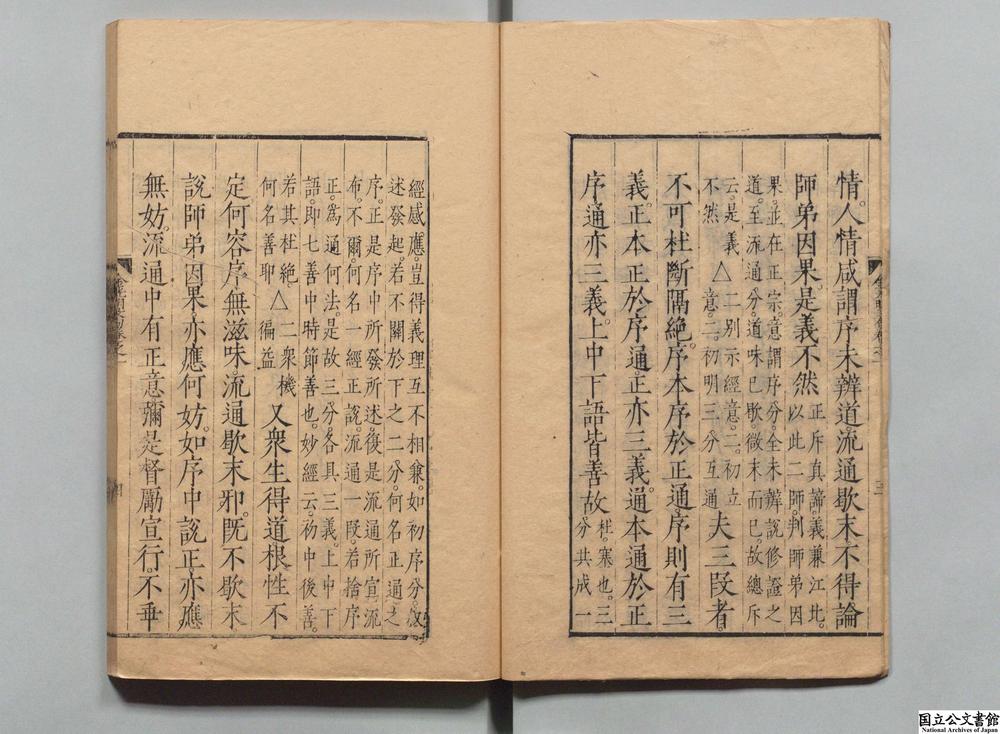 情。人情咸謂序未辨道。流通歇末不得論
師弟因果。是義不然
正斥真諦。義兼江北。
以此二師。判師弟因
果。並在正宗。意謂序分。全未辨說修證之
道。至流通分。道味已歇。微末而已。故總斥
云。是義
不然
△二別示經意。二。初立
意。二。初明三分互通
夫三段者。
不可杜斷隔絕。序本序於正通。序則有三
義。正本正於序通。正亦三義。通本通於正
序通亦三義。上中下語皆善故
杜。塞也。三
分共成一
經感應。豈得義理互不相兼。如初序分。叙
述發起。若不關於下之二分。何名正通之
序。正是序中所發所述。復是流通所宣流
布。不爾。何名一經正說。流通一段。若捨序
正。為通何法。是故三分。各具三義。上中下
語。即七善中時節善也。妙經云。初中後善。
若其杜絕。
何名善耶
△二衆機
徧益
又衆生得道根性不
定何容序無滋味流通歇末邪。既不歇末。
說師弟因果亦應何妨。如序中說正。亦應
無妨。流通中有正意彌是督勵宣行。不垂
国立公文書館
National Archives of Japan